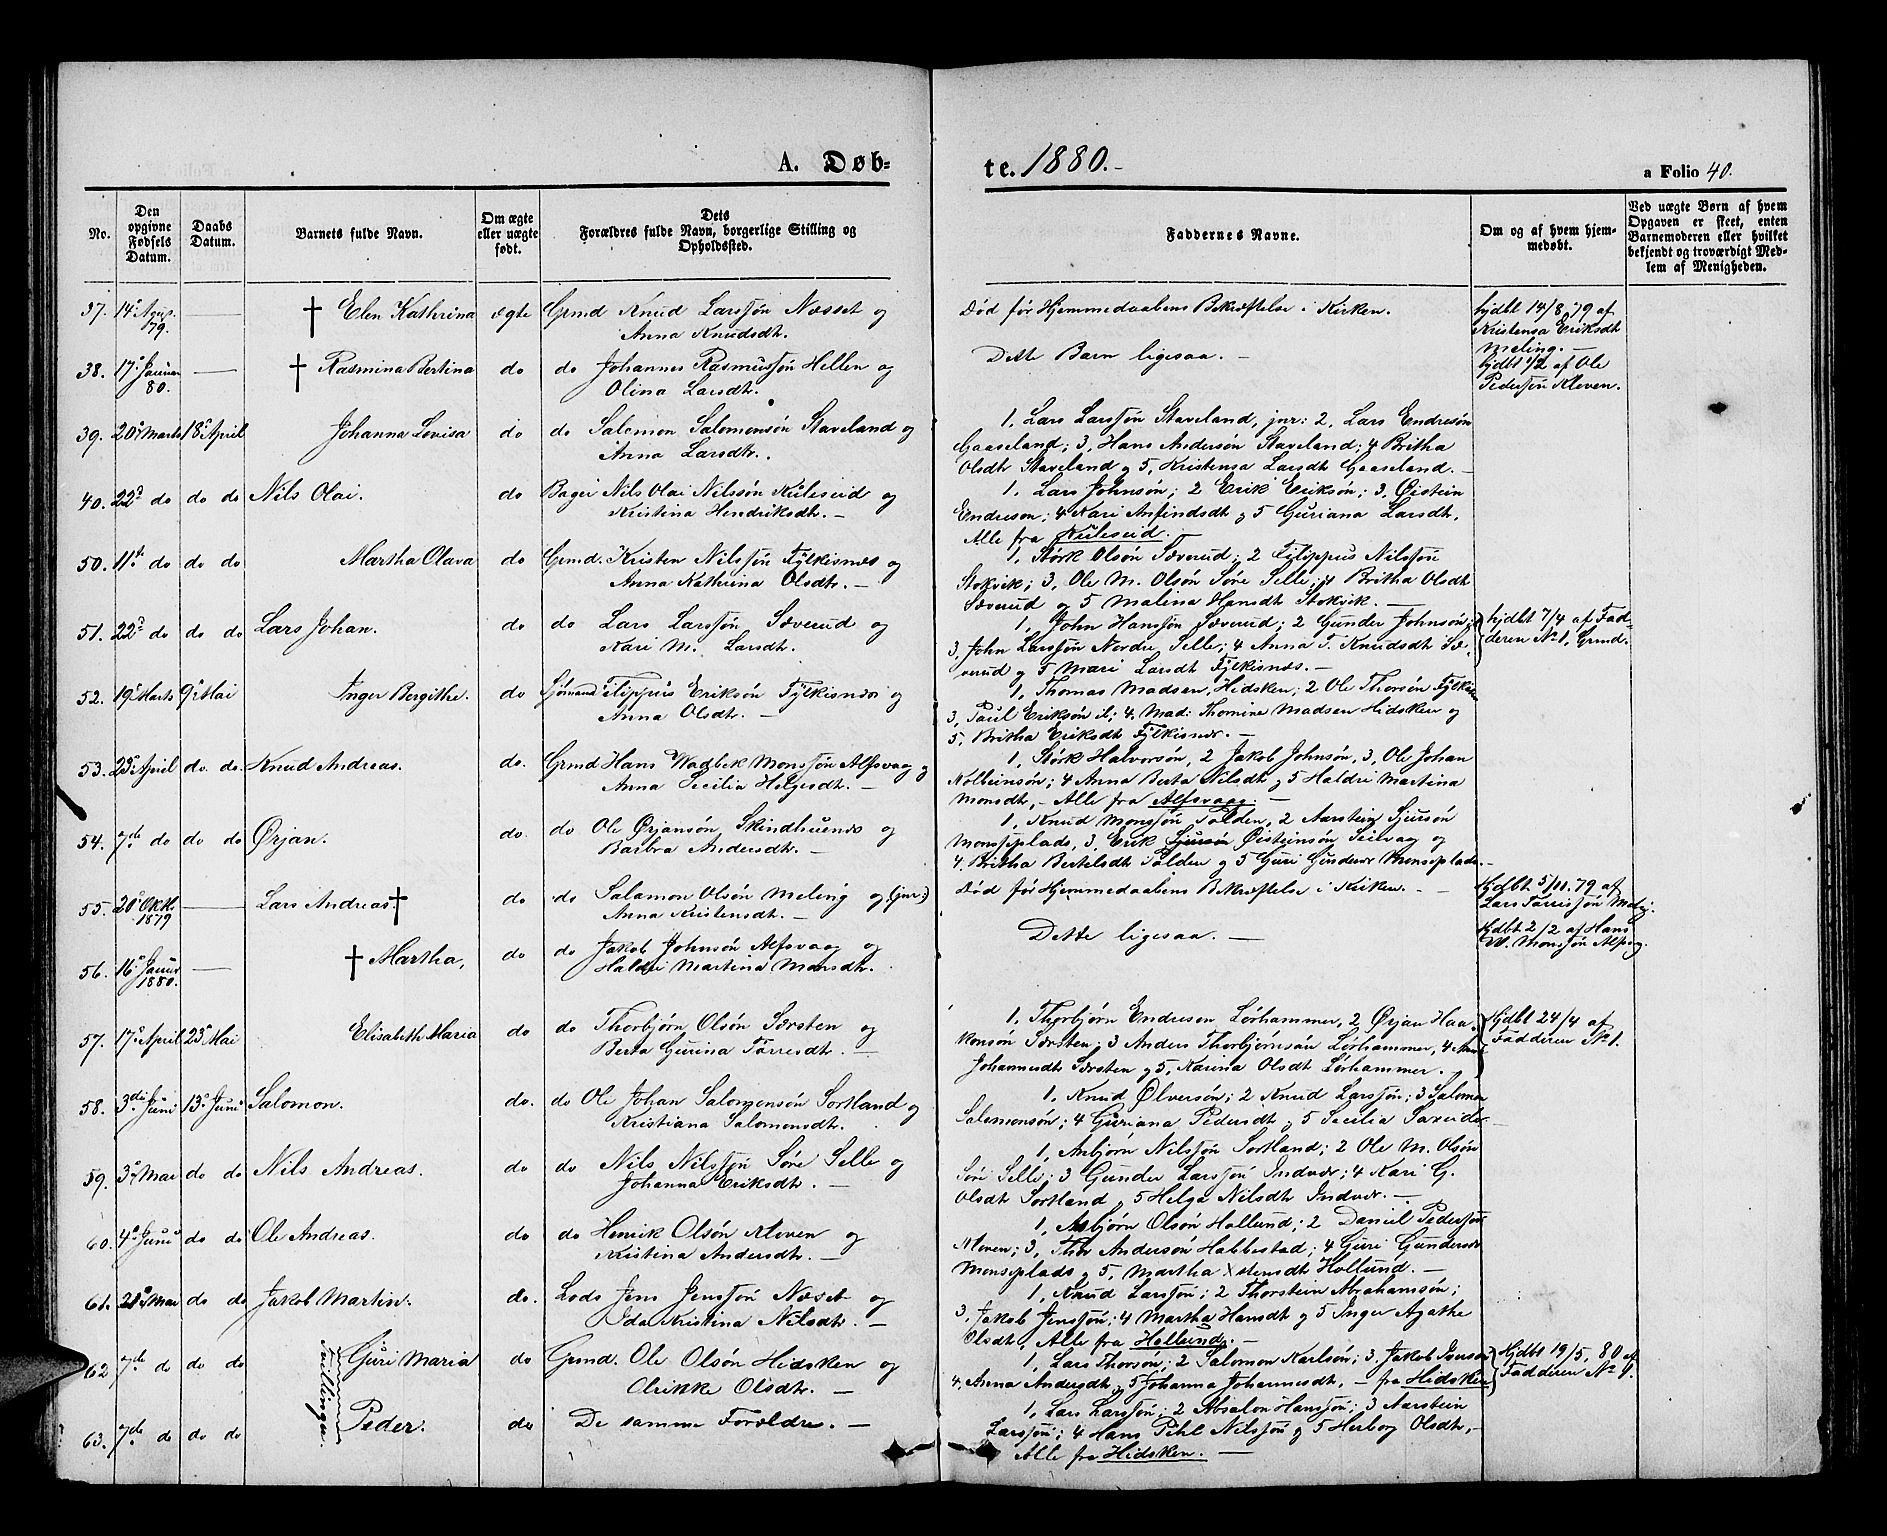 A. Døb-
te. 1880.-
a Folio 40.
No.
Den opgivne Fødsels Datum.
Daabs Datum.
Barnets fulde Navn.
Om ægte eller uægte født.
Dets Forældres fulde Navn, borgerlige Stilling og Opholdssted.
Faddernes Navne.
Om og af hvem hjemmedøbt.
Ved uægte Børn af hvem Opgaven er skeet, enten Barnemoderen eller hvilket bekjendt og troværdigt Medlem af Menigheden.
37. 14de Aug. 79. — † Elen Kathrina ægte Grmd Knud Larssøn Næsset og
Anna Knudsdt.
Død før Hjemmedaabens Bekræftelse i Kirken.
hjdbt 14/8 79 af
Kristensa Eriksdt
Meling. —
38. 17de Januar 80. — † Rasmina Bertina do do Johannes Rasmussøn Hellen og
Olina Larsdtr.
Dette Barn ligesaa. —
hjdbt 1/2 af Ole
Pedersøn Kleven.
39. 20de Marts 18de April Johanna Lovisa do do Salemon Salomonsøn Staveland og
Anna Larsdtr.
1, Lars Larssøn Staveland, jnr: 2, Lars Endresøn
Gaaseland; 3, Hans Andersøn Staveland; 4 Britha
Olsdt Staveland g 5, Kristensa Larsdt Gaaseland. —
40. 22d do do do Nils Olai. do Bager Nils Olai Nilssøn Kuleseid og
Kristina Hendriksdtr. —
1, Lars Johnsøn; 2 Erik Eriksøn; 3, Øistein
Endresen; 4 Kari Anfindsdt g 5 Guriana Larsdt,
Alle fra Kuleseid.
50. 11te do do do Martha Olava do Grmd. Kristen Nilssøn Fylkesnæs og
Anna Kathrina Olsdtr. —
1, Størk Olsøn Sæverud; 2 Filippus Nilssøn
Stokvik; 3, Ole M. Olsøn Søre Selle; 4 Britha Olsdt
Sæverud og 5 Malina Hansdt Stokvik. —
51. 22d do do do Lars Johan. do do Lars Larssøn Sæverud og
Kari M. Larsdt.
1, John Hanssøn Sæverud; 2 Gunder Johnsøn;
3, John Larssøn Nordre Selle; 4 Anna T. Knudsdt Sæ-
verud g 5 Mari Larsdt Fylkisnæs. —
hjdbt 7/4 af Fad-
deren No 1, Grmd.
52. 19de Marts 9de Mai Inger Bergithe. do Sjømand Filippus Eriksøn Fylkisnæs og
Anna Olsdtr. —
1, Thomas Madsen Hidsken; 2 Ole Thorsøn Fylkisn
3, Paul Eriksøn il; 4, Mad: Thomine Madsen Hidsken og
5, Britha Eriksdt Fylkisnæs. —
53. 23de April do. do. Knud Andreas. do. Grmd Hans Wadbek Monssøn Alfsvaag g
Anna Secilia Helgesdt. —
1, Størk Halvorsøn, 2 Jakob Johnsøn, 3, Ole Johan
Kolbeinsøn; 4 Anna Berta Nilsdt g 5 Haldri Martina
Monsdt, - Alle fra Alfsvaag —
54. 7de do do do Ørjan. do. do Ole Ørjansøn Skindhuenæs og
Barbra Andersdtr. —
1, Knud Monssøn Tolden, 2 Aarstein Sjursøn
Monseplads, 3, Erik Sjursøn Øisteinsøn Seilvag og
4, Britha Bertelsdt Tolden g 5 Guri Gundersdt Monseplads. —
55. 20de Oktb. 1879 Lars Andreas † do do Salamon Olsøn Meling og (jnr.)
Anna Kristensdt. —
Død før Hjemmedaabens Bekræftelse i Kirken. —
hjdbt 5/11. 79 af
Lars Torrissøn Melig.
56. 16de Januar 1880. — † Martha, do do Jakob Johnsøn Alfsvaag og
Haldri Martina Monsdt.
Dette ligesaa. —
hjdbt 2/2 af Hans
W. Monssøn Alfsvg.
57. 17de April 23de Mai Elisabeth Maria do do Thorbjørn Olsøn Særsten og
Berta Gurina Torresdt. —
1, Thorbjørn Endresen Lørhammer, 2 Ørjan Haa-
konsøn Særsten; 3 Anders Thorbjørnsøn Lørhammer, 4 Anna
Johannesdt Særsten g 5, Karina Olsdt Lørhammer. —
hjdbt 24/4 af
Fadderen No 1.
58. 3die Juni 13de Juni Salomon. do. do Ole Johan Salomonsøn Sortland og
Kristiana Salomonsdt.
1, Knud Ølversøn; 2 Knud Larssøn; 3 Salomon
Salomonsøn; 4 Guriana Pedersdt g 5 Secilia
59. 3de Mai do do Nils Andreas. do do Nils Nilssøn Søre Selle og
Johanna Eriksdtr. —
1, Anbjørn Nilssøn Sortland; 2 Ole M. Olsøn
Søre Selle; 3 Gunder Larssøn Indvær; 4 Kari G.
Olsdt Sortland g 5 Helga Nilsdt Indvær. —
60. 4de Juni do do Ole Andreas. do do Henrik Olsøn Kleven og
Kristina Andersdtr. —
1, Asbjørn Olsøn Hollund; 2 Daniel Pederssøn
Kleven; 3, Thor Andersøn Habbestad; 4 Guri Gundersdt
Monseplads g 5, Martha Xstensdt Hollund. —
61. 21de Mai do do Jakob Martin. do. Lods Jens Jenssøn Næset og
Ida Kristina Nilsdtr. —
1, Knud Larssøn; 2 Thorstein Abrahamsøn;
3, Jakob Jenssøn; 4 Martha Hansdt g 5 Inger Agathe
Olsdt, Alle fra Hollund. —
62 7de do do do Tvillinger. Guri Maria do Grmd. Ole Olsøn Hidsken og
Olrikke Olsdtr. —
1, Lars Thorsøn; 2 Salomon Karlsøn; 3 Jakob Iversøn
4, Anna Andersdt g 5 Johanna Johannesdt, — fra Hidsken
hjdbt 19/5. 80 af
Fadderen No 1.
63. 7de do do do Peder. do De samme Forældre. —
1, Lars Larssøn; 2 Absalon Hanssøn; 3 Aarstein
Larssøn; 4 Hans Pihl Nilssøn g 5 Herbog Olsdtr,-
Alle fra Hidsken. —